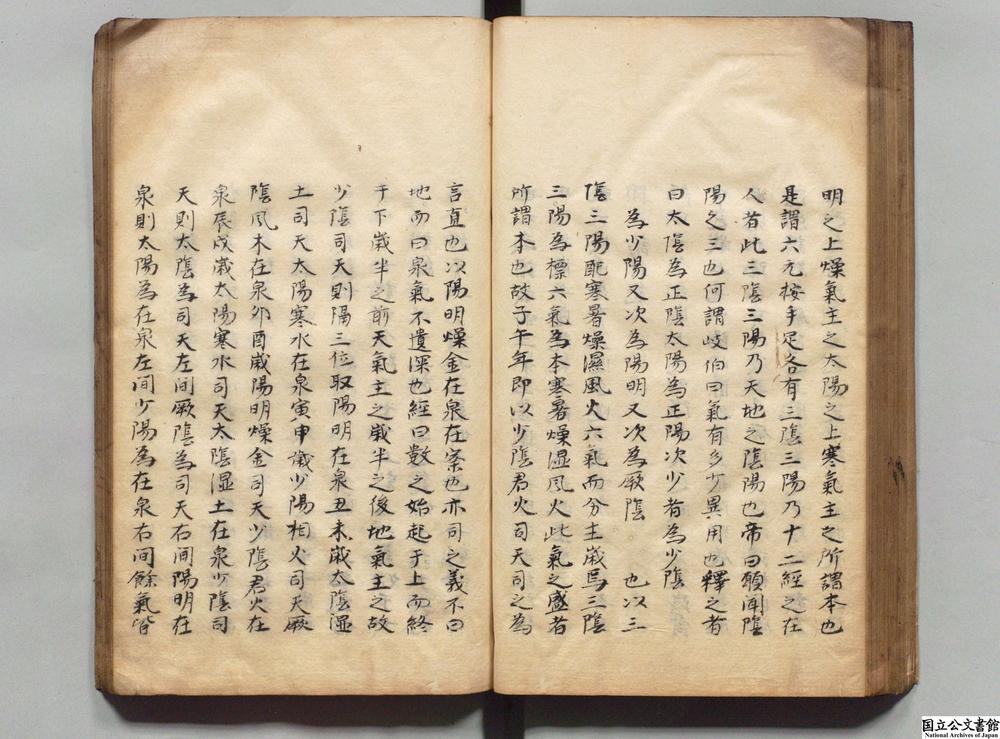 明之上燥氣主之太陽之上寒氣主之所謂本也
是謂六元按手足各有三陰三陽乃十二經之在
人者此三陰三陽乃天地之陰陽也帝曰願聞陰
陽之三也何謂岐伯曰氣有多少異用也釋之者
曰太陰為正陰太陽為正陽次少者為少陰
為少陽又次為陽明又次為厥陰　也以三
陰三陽配寒暑燥濕風火六氣而分主歲焉三陰
三陽為標六氣為本寒暑燥湿風火此氣之盛者
所謂本也故子午年即以少陰君火司天司之為
言直也以陽明燥金在泉在寀也亦司之義不曰
地而曰泉氣不遺深也經曰數之始起于上而終
于下歲半之前天氣主之歲半之後地氣主之故
少陰司天則隔三位取陽明在泉丑未歲太陰湿
土司天太陽寒水在泉寅申歲少陽相火司天厥
陰風木在泉卯酉歲陽明燥金司天少陰君火在
泉辰戌歲太陽寒水司天太陰湿土在泉少陰司
天則太陰為司天左间厥陰為司天右间陽明在
泉則太陽為在泉左间少陽為在泉右间餘氣皆
国立公文書館
National Archives of Japan